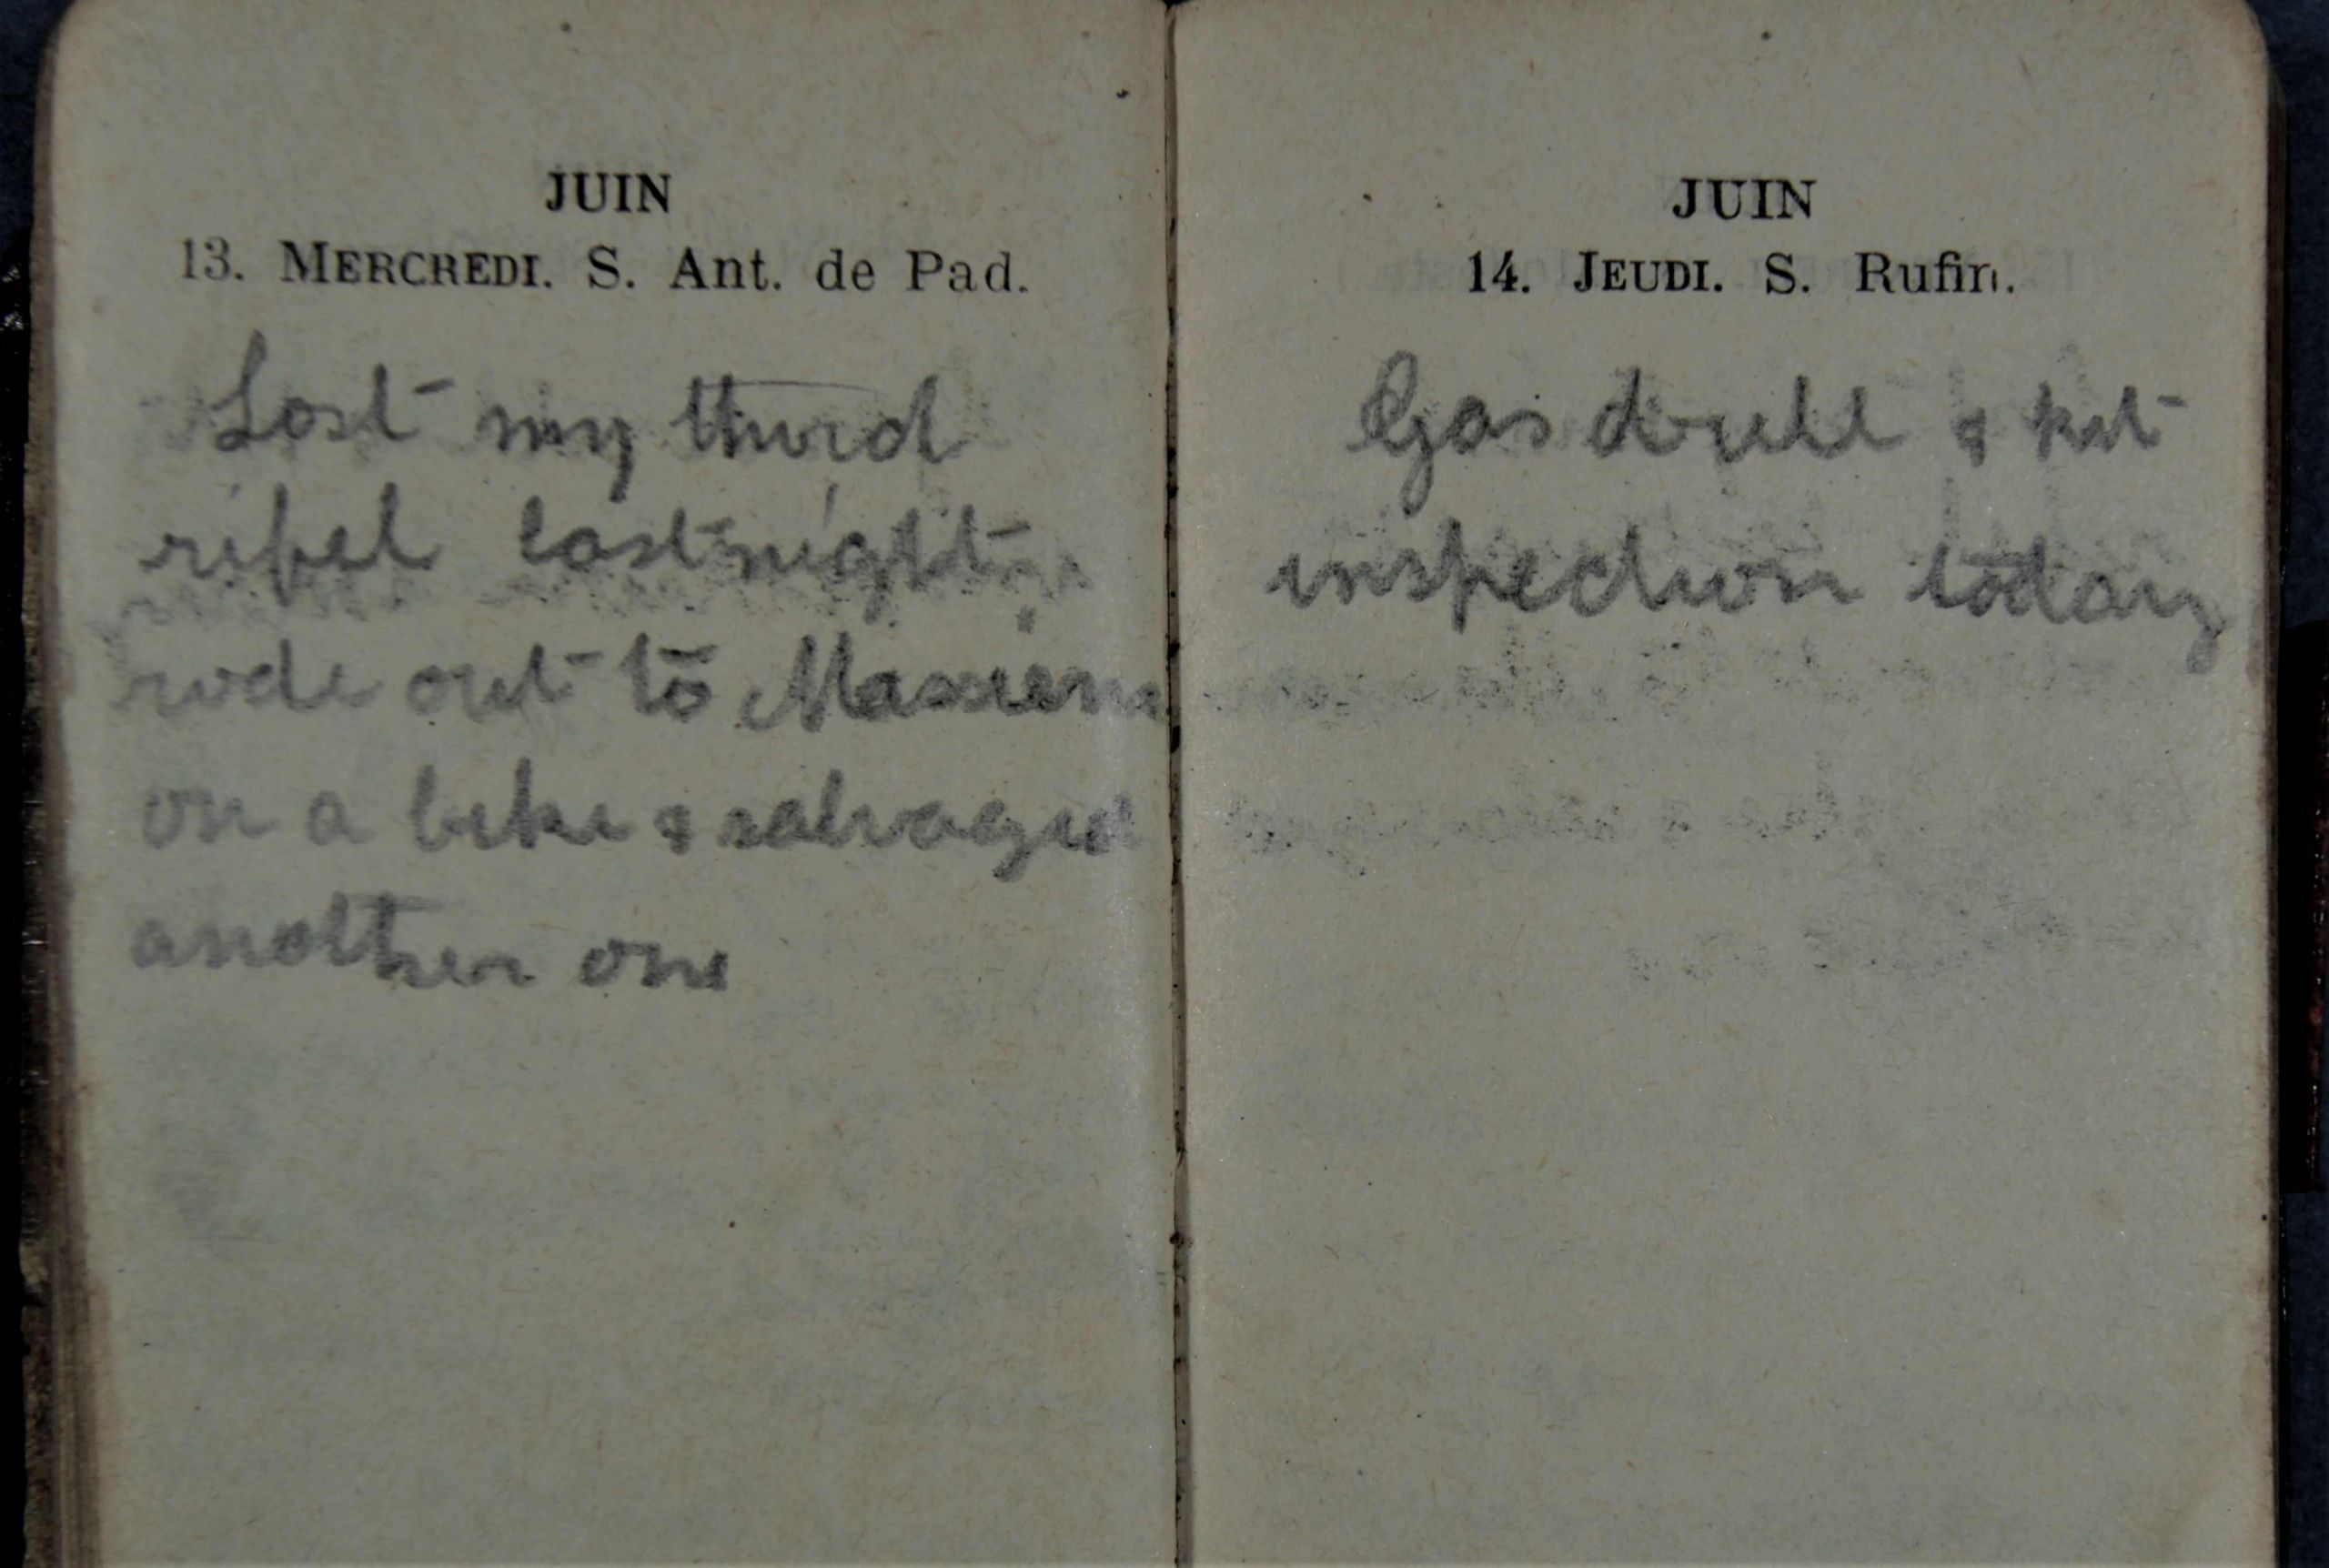 JUIN
13. MERCREDI. S. Ant. de Pad.
Lost my third
rifel last night
rode out to
on a bike & salvaged
another one
JUIN
14. JEUDI. S. Rufin.
Gas drill & kit
inspection today